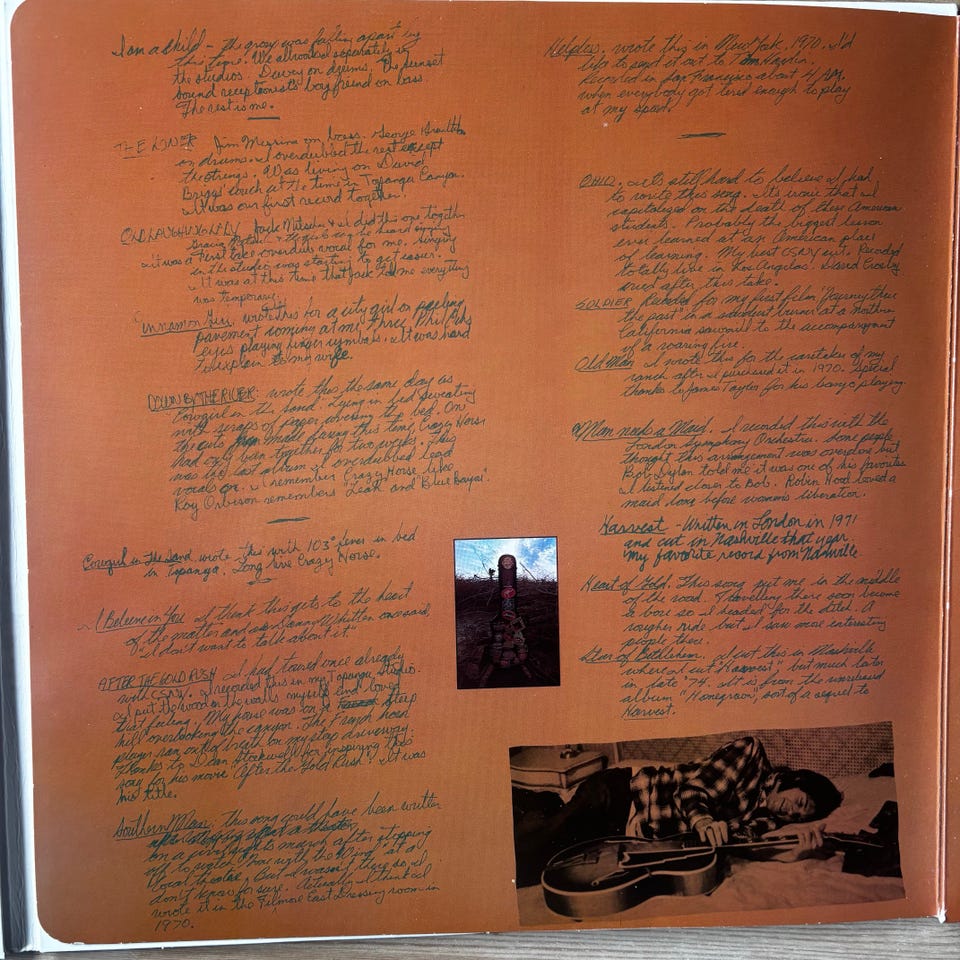 I am a Child - the group was falling apart by
this time. We all worked separately in
the studios. Dewey on drums. The sunset
sound receptionist's boyfriend on bass.
The rest is me.
THE LONER Jim Messina on bass. George Grantham
on drums. I overdubbed the rest except
the strings. Was living on David
Briggs' couch at the time in Topanga Canyon.
It was our first record together.
OLD LAUGHING LADY Jack Nitsche & I did this one together
Gracia Nitsche & the girls can be heard
it was a first take overdub vocal for me. Singing
in the studio was starting to get easier.
It was at this time that Jack told me everything
was temporary.
Cinnamon Girl wrote this for a city girl on peeling
pavement coming at me thru Phil Ochs
eyes playing finger cymbals. It was hard
to explain to my wife.
DOWN BY THE RIVER: wrote this the same day as
Cowgirl in the Sand. Lying in bed sweating
with scraps of paper covering the bed. On
the cuts from made during this time, Crazy Horse
had only been together for two weeks. This
was the last album I overdubbed lead
vocals on. I remember Crazy Horse like
Roy Orbison remembers "Leah" and "Blue Bayou".
Cowgirl in the Sand wrote this with 103° fever in bed
in Topanga. Long live Crazy Horse.
I Believe in You I think this gets to the heart
of the matter and as Danny Whitten once said,
"I don't want to talk about it"
AFTER THE GOLD RUSH I had toured once already
with CSNY. I recorded this in my Topanga studio.
I put the wood on the walls myself and loved
that feeling. My house was on a steep
hill overlooking the canyon. The French horn
player ran out of breath on my steep driveway.
Thanks to Dean Stockwell for inspiring this
song for his movie "After the Gold Rush". It was
his title.
Southern Man: This song could have been written
on a civil rights march after stopping
off to watch "Gone with the Wind" at a
local theatre. But I wasn't there so I
don't know for sure. Actually I think I
wrote it in the Fillmore East Dressing room in
1970.
Helpless. wrote this in New York, 1970. I'd
like to send it out to
Recorded in San Francisco about 4 AM.
when everybody got tired enough to play
at my speed.
OHIO. It's still hard to believe I had
to write this song. It's ironic that I
capitalized on the death of these American
students. Probably the biggest lesson
ever learned at an American place
of learning. My best CSNY cut. Recorded
totally live in Los Angeles. David Crosby
cried after this take.
SOLDIER Recorded for my first film "Journey thru
the past" in a sawdust burner at a northern
California sawmill to the accompanyment
of a roaring fire.
Old Man I wrote this for the caretaker of my
ranch after I purchased it in 1970. Special
thanks to James Taylor for his banjo playing.
A Man needs a Maid. I recorded this with the
London Symphony Orchestra. Some people
thought this arrangement was overdone but
Bob Dylan told me it was one of his favorites.
I listened closer to Bob. Robin Hood loved a
maid long before women's liberation.
Harvest - Written in London in 1971
and cut in Nashville that year.
My favorite record from Nashville
Heart of Gold. This song put me in the middle
of the road. Travelling there soon became
a bore so I headed for the ditch. A
rougher ride but I saw more interesting
people there.
Star of Bethlehem. I cut this in Nashville
where I cut "Harvest", but much later
in late '74. It is from the unreleased
album "Homegrown", sort of a sequel to
Harvest.